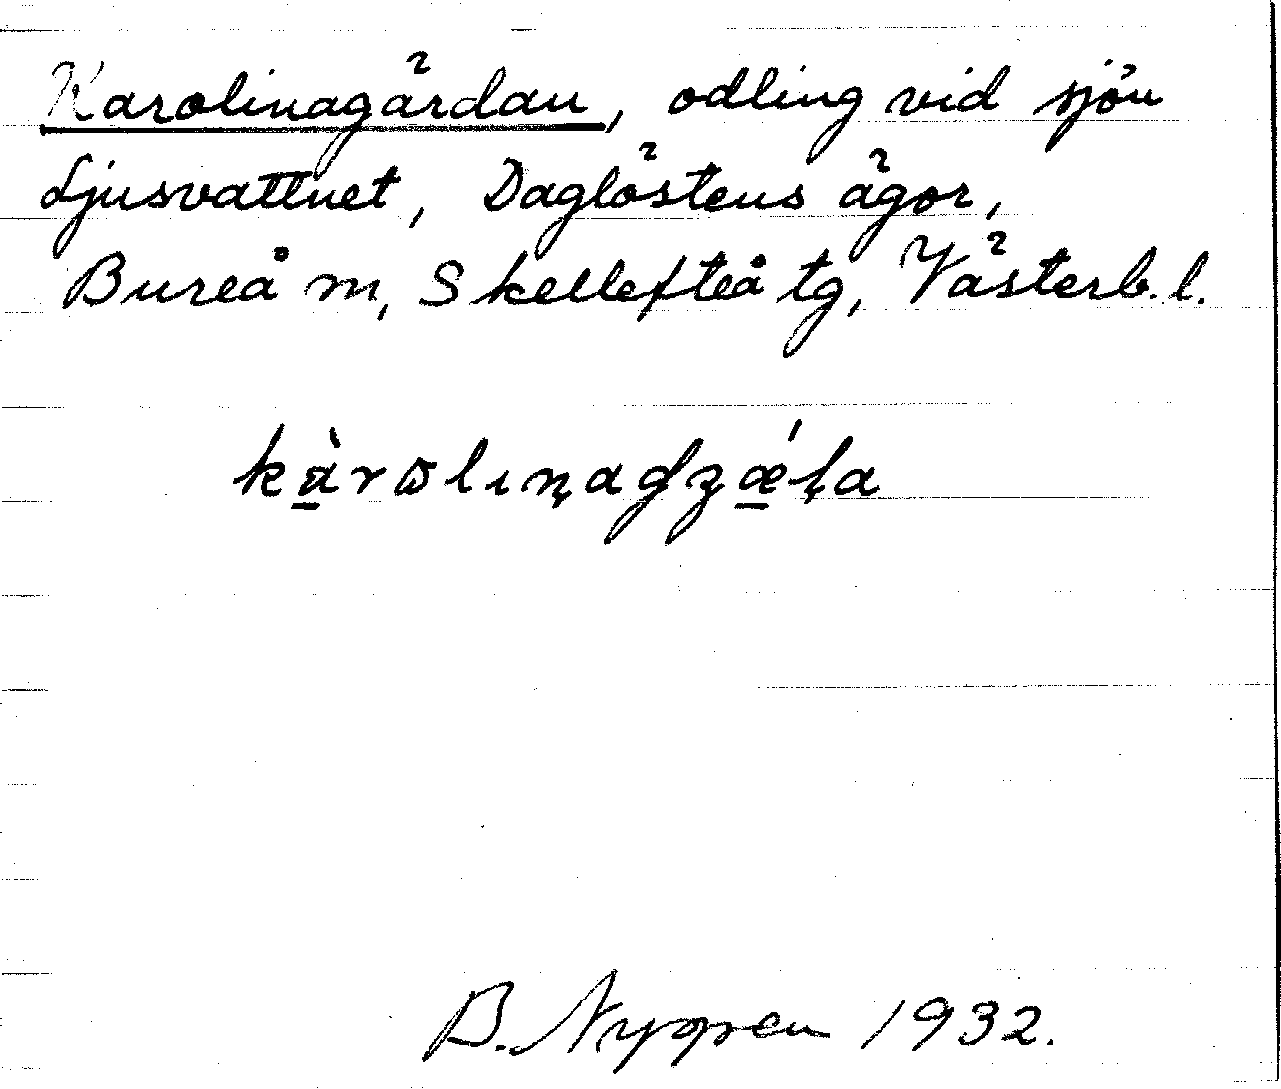 Karolinagärdan, odling vid sjön
Ljusvattnet, Daglöstens ägor,
Bureå m, Skellefteå tg, Västerb. l.
B. Nygren 1932.